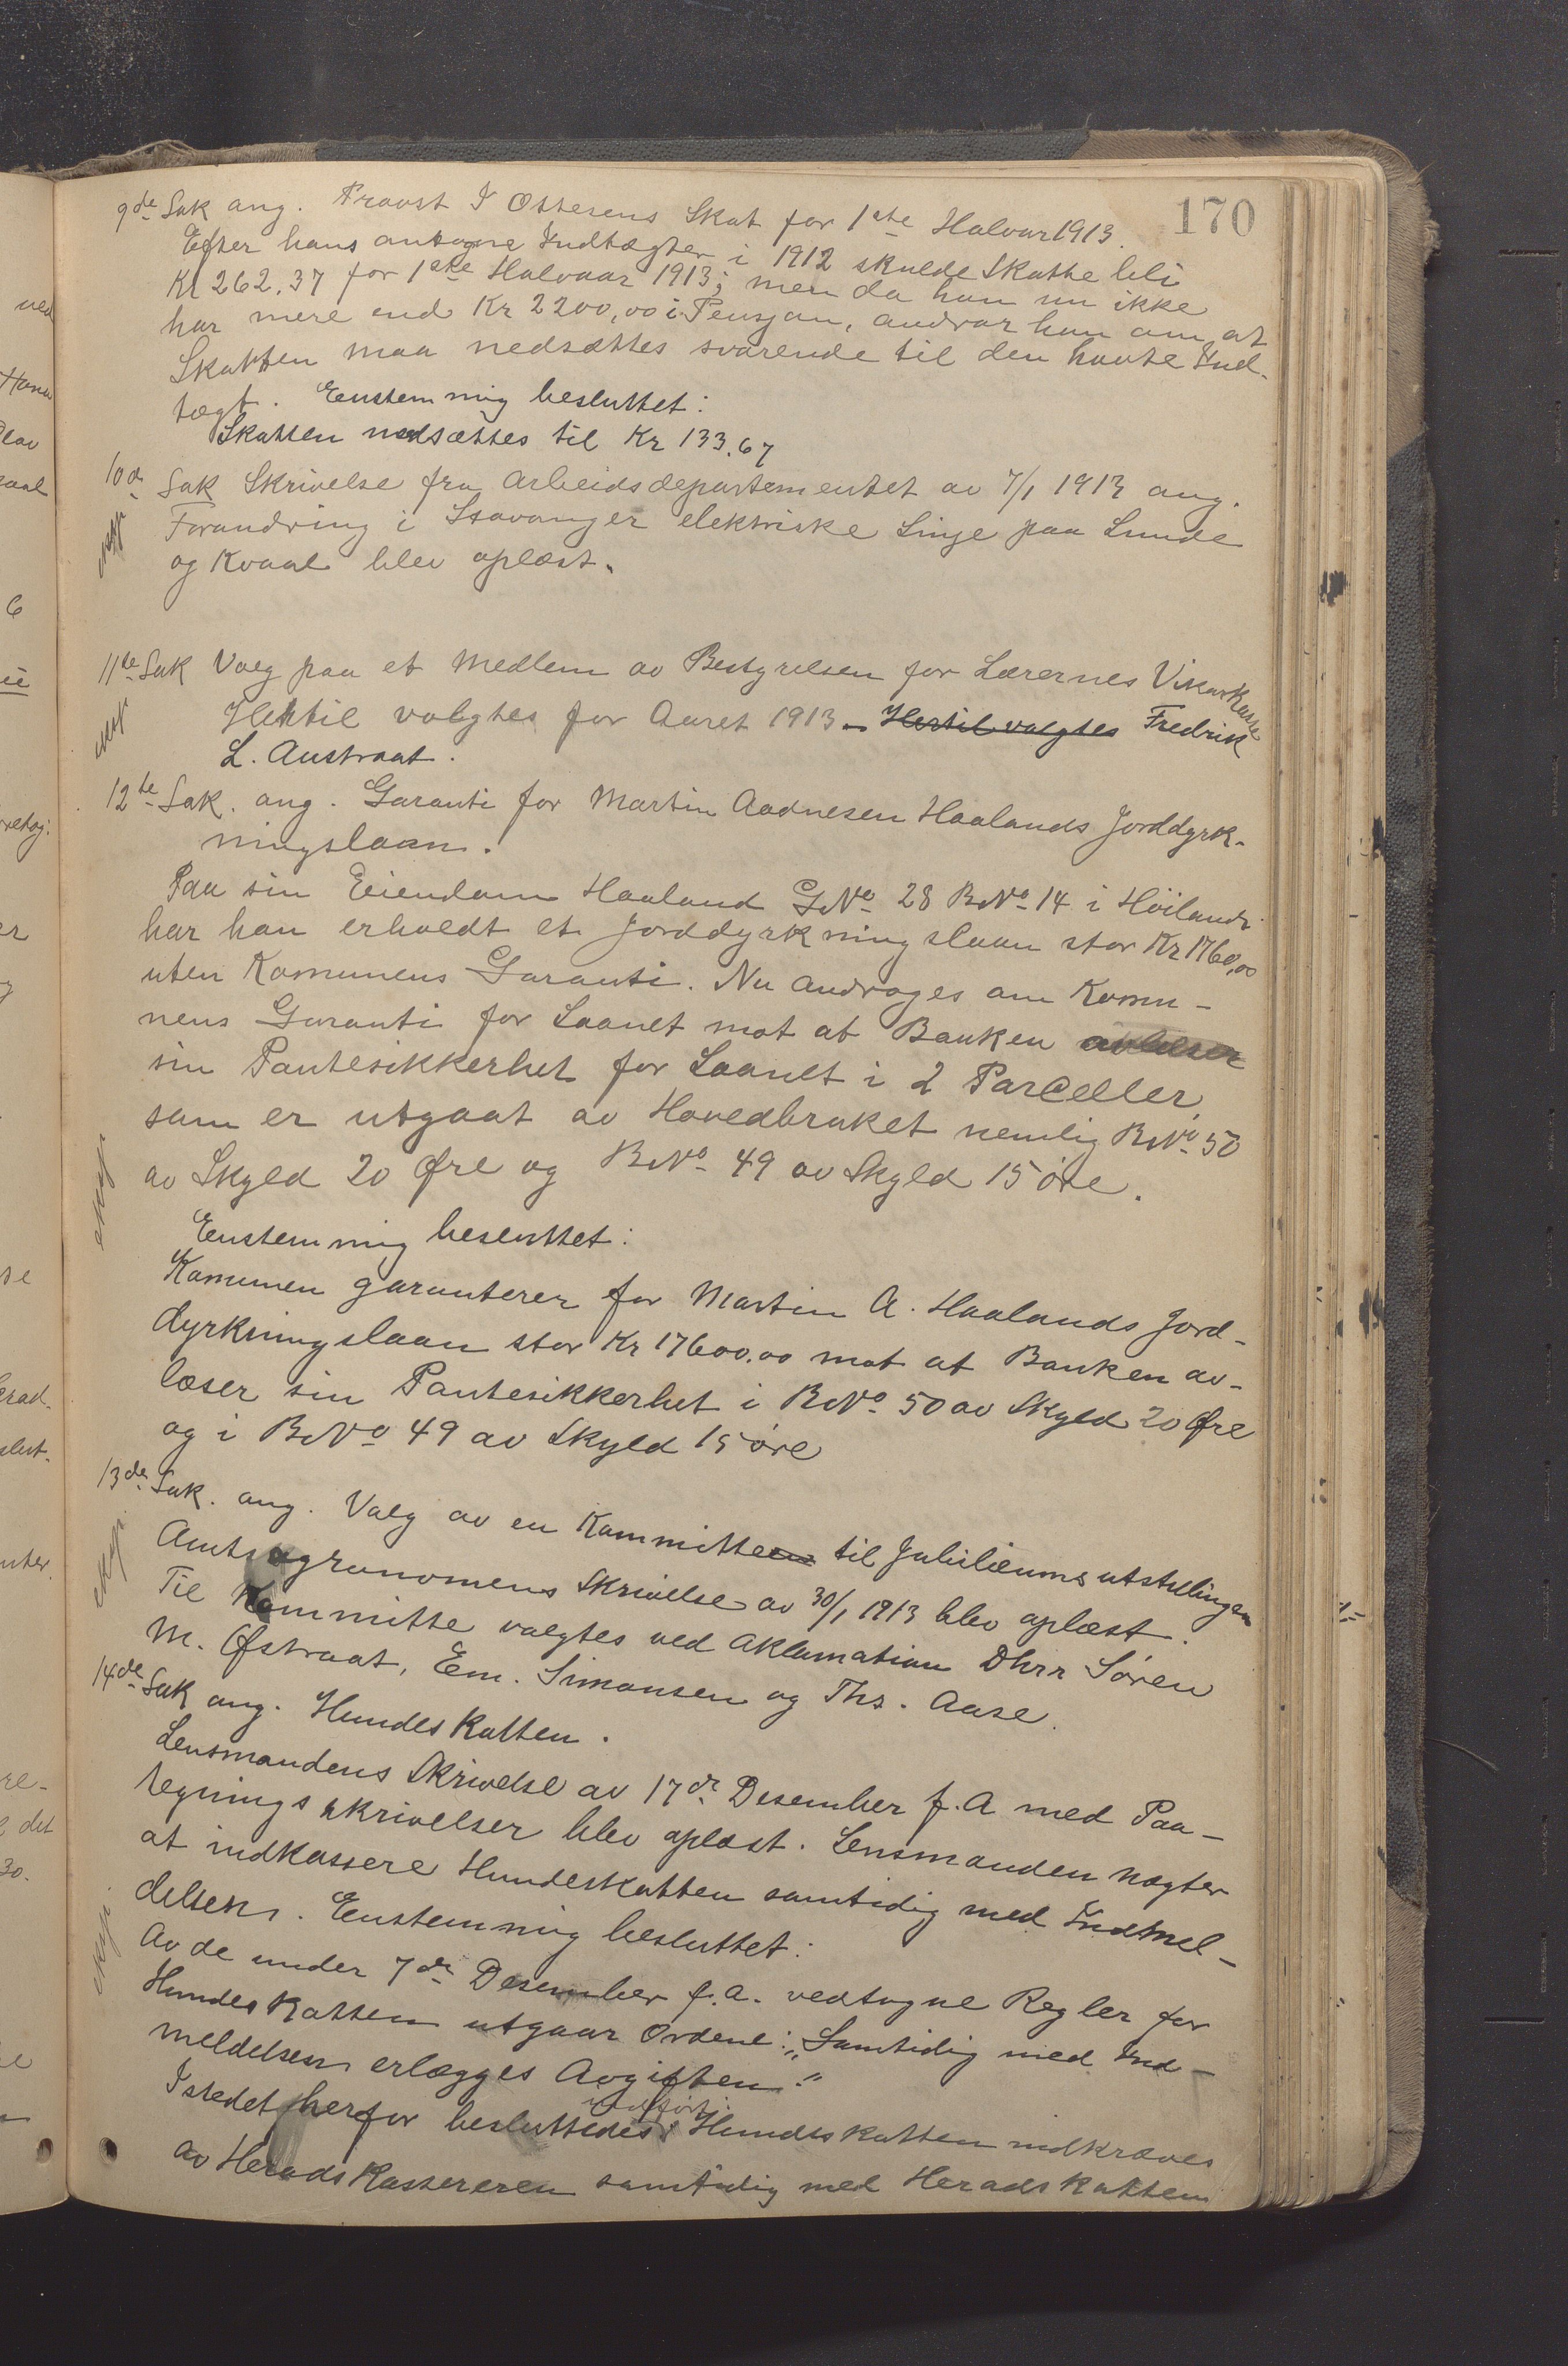 170
9de Sak ang. Provst I Ossesens Skat for 1ste Halvaar 1913.
Efter hans antagne Indtægter i 1912 skulde Skatte bli
Kr 262.37 for 1ste Halvaar 1913; men da han nu ikke
har mere end Kr 2200,00 i Pensjon, andrar han om at
Skatten maa nedsættes svarende til den havte Ind-
tægt. Enstemmig besluttet:
Skatten nedsættes til Kr 133.67
10de Sak Skrivelse fra Arbeidsdepartementet av 7/1 1913 ang.
Forandring i Stavanger elektriske Linje paa Lunde
og Kvaal blev oplæst.
11te Sak Valg paa et Medlem av Bestyrelsen for Lærernes Vikarkasse
Hertil valgtes for Aaret 1913 - Hertil valgtes Fredrik
L. Austraat.
12te Sak. ang. Garanti for Martin Aadnesen Haalands Jorddyrk-
ningslaan.
Paa sin Eiendom Haaland GNo 28 BNo 14 i Höiland
har han erholdt et Jorddyrkningslaan stor Kr 1760,00
uten Komunens Garanti. Nu androges om Komu-
nens Garanti for Laanet mot at Banken avlæser
sin Pantesikkerhet for Laanet i 2 Parceller,
som er utgaat av Hovedbruket nemlig BNo 50
av Skyld 20 Øre og BNo 49 av Skyld 15 øre.
Enstemmig besluttet:
Komunen garanterer for Martin A. Haalands Jord-
dyrkningslaan stor Kr 17600.00 mot at Banken av-
læser sin Pantesikkerhet i BNo 50 av Skyld 20 Øre
og i BNo 49 av Skyld 15 øre
13de Sak. ang. Valg av en Kommitteen til Jubilæumsutstillingen
Amtsagronomens Skrivelse av 30/1 1913 blev oplæst.
Til Kommitte valgtes ved Aklamation Dhrr Søren
M. Øfstraat, Em. Simonsen og Ths. Aase.
14de Sak ang. Hundeskatten.
Lensmandens Skrivelse av 17de Desember f.A med Paa-
tegningsskrivelser blev oplæst. Lensmanden nægter
at indkassere Hundeskatten samtidig med Indmel-
delsen. Enstemmig besluttet:
Av de under 7de Desember f.a. vedtagne Regler for
Hundeskatten utgaar Ordene: „Samtidig med Ind-
meldelsen erlægges Avgiften."
Istedet herfor besluttedes Hundeskatten indkræves
av Heradskassereren samtidig med Heradskatten